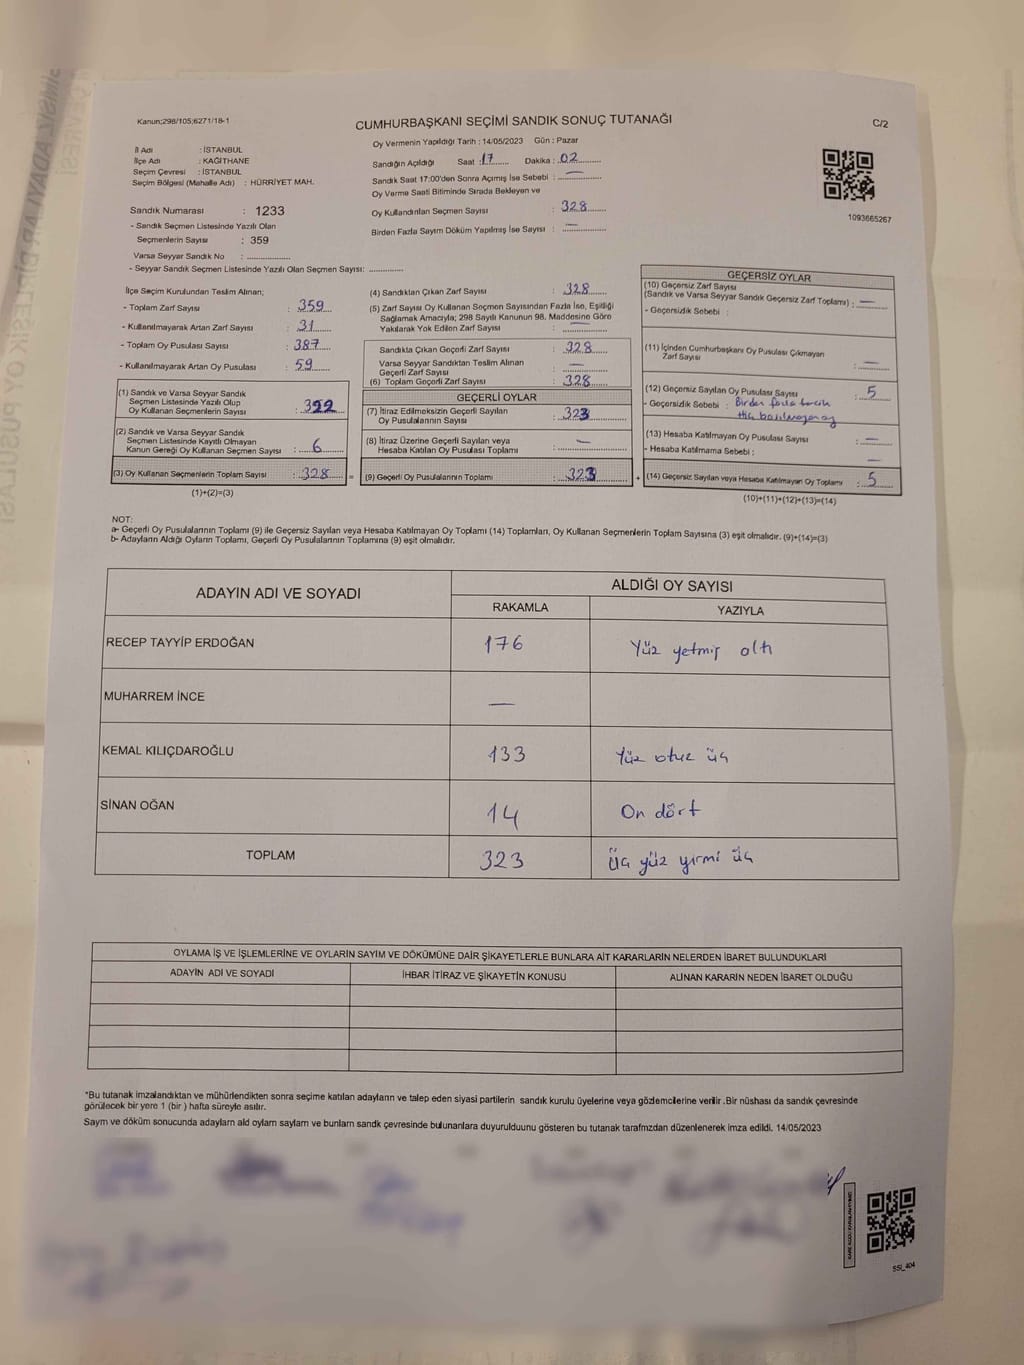 Kanun;298/105;6271/18-1
CUMHURBAŞKANI SEÇİMİ SANDIK SONUÇ TUTANAĞI
C/2
İl Adı : İSTANBUL
İlçe Adı : KAĞITHANE
Seçim Çevresi : İSTANBUL
Seçim Bölgesi (Mahalle Adı) : HÜRRİYET MAH.
Sandık Numarası : 1233
- Sandık Seçmen Listesinde Yazılı Olan
Seçmenlerin Sayısı : 359
Varsa Seyyar Sandık No : ....................
- Seyyar Sandık Seçmen Listesinde Yazılı Olan Seçmen Sayısı: ...............
Oy Vermenin Yapıldığı Tarih : 14/05/2023 Gün : Pazar
Sandığın Açıldığı Saat : 17 Dakika : 02
Sandık Saat 17:00'den Sonra Açımış İse Sebebi : —
Oy Verme Saati Bitiminde Sırada Bekleyen ve
Oy Kullandırılan Seçmen Sayısı : 328
Birden Fazla Sayım Döküm Yapılmış İse Sayısı : —
1093665267
İlçe Seçim Kurulundan Teslim Alınan;
- Toplam Zarf Sayısı : 359
- Kullanılmayarak Artan Zarf Sayısı : 31
- Toplam Oy Pusulası Sayısı : 387
- Kullanılmayarak Artan Oy Pusulası : 59
(1) Sandık ve Varsa Seyyar Sandık
Seçmen Listesinde Yazılı Olup
Oy Kullanan Seçmenlerin Sayısı : 322
(2) Sandık ve Varsa Seyyar Sandık
Seçmen Listesinde Kayıtlı Olmayan
Kanun Gereği Oy Kullanan Seçmen Sayısı : 6
(3) Oy Kullanan Seçmenlerin Toplam Sayısı : 328 =
(1)+(2)=(3)
(4) Sandıktan Çıkan Zarf Sayısı : 328
(5) Zarf Sayısı Oy Kullanan Seçmen Sayısından Fazla İse, Eşitliği
Sağlamak Amacıyla; 298 Sayılı Kanunun 98. Maddesine Göre
Yakılarak Yok Edilen Zarf Sayısı : —
Sandıkta Çıkan Geçerli Zarf Sayısı : 328
Varsa Seyyar Sandıktan Teslim Alınan
Geçerli Zarf Sayısı : —
(6) Toplam Geçerli Zarf Sayısı : 328
GEÇERLİ OYLAR
(7) İtiraz Edilmeksizin Geçerli Sayılan
Oy Pusulalarının Sayısı : 323
(8) İtiraz Üzerine Geçerli Sayılan veya
Hesaba Katılan Oy Pusulası Toplamı : —
(9) Geçerli Oy Pusulalarının Toplamı : 323 +
GEÇERSİZ OYLAR
(10) Geçersiz Zarf Sayısı
(Sandık ve Varsa Seyyar Sandık Geçersiz Zarf Toplamı) : —
- Geçersizlik Sebebi :
(11) İçinden Cumhurbaşkanı Oy Pusulası Çıkmayan
Zarf Sayısı : —
(12) Geçersiz Sayılan Oy Pusulası Sayısı : 5
- Geçersizlik Sebebi : Birden fazla
Hiç
(13) Hesaba Katılmayan Oy Pusulası Sayısı : —
- Hesaba Katılmama Sebebi : —
(14) Geçersiz Sayılan veya Hesaba Katılmayan Oy Toplamı : 5
(10)+(11)+(12)+(13)=(14)
NOT:
a- Geçerli Oy Pusulalarının Toplamı (9) ile Geçersiz Sayılan veya Hesaba Katılmayan Oy Toplamı (14) Toplamları, Oy Kullanan Seçmenlerin Toplam Sayısına (3) eşit olmalıdır. (9)+(14)=(3)
b- Adayların Aldığı Oyların Toplamı, Geçerli Oy Pusulalarının Toplamına (9) eşit olmalıdır.
ADAYIN ADI VE SOYADI
ALDIĞI OY SAYISI
RAKAMLA YAZIYLA
RECEP TAYYİP ERDOĞAN 176 Yüz yetmiş altı
MUHARREM İNCE —
KEMAL KILIÇDAROĞLU 133 Yüz otuz üç
SİNAN OĞAN 14 On dört
TOPLAM 323 Üç yüz yirmi üç
OYLAMA İŞ VE İŞLEMLERİNE VE OYLARIN SAYIM VE DÖKÜMÜNE DAİR ŞİKAYETLERLE BUNLARA AİT KARARLARIN NELERDEN İBARET BULUNDUKLARI
ADAYIN ADI VE SOYADI İHBAR İTİRAZ VE ŞİKAYETİN KONUSU ALINAN KARARIN NEDEN İBARET OLDUĞU
*Bu tutanak imzalandıktan ve mühürlendikten sonra seçime katılan adayların ve talep eden siyasi partilerin sandık kurulu üyelerine veya gözlemcilerine verilir .Bir nüshası da sandık çevresinde
görülecek bir yere 1 (bir ) hafta süreyle asılır.
Sayım ve döküm sonucunda adayların ald oyların sayları ve bunların sandk çevresinde bulunanlara duyurulduunu gösteren bu tutanak tarafmzdan düzenlenerek imza edildi. 14/05/2023
SSI_404